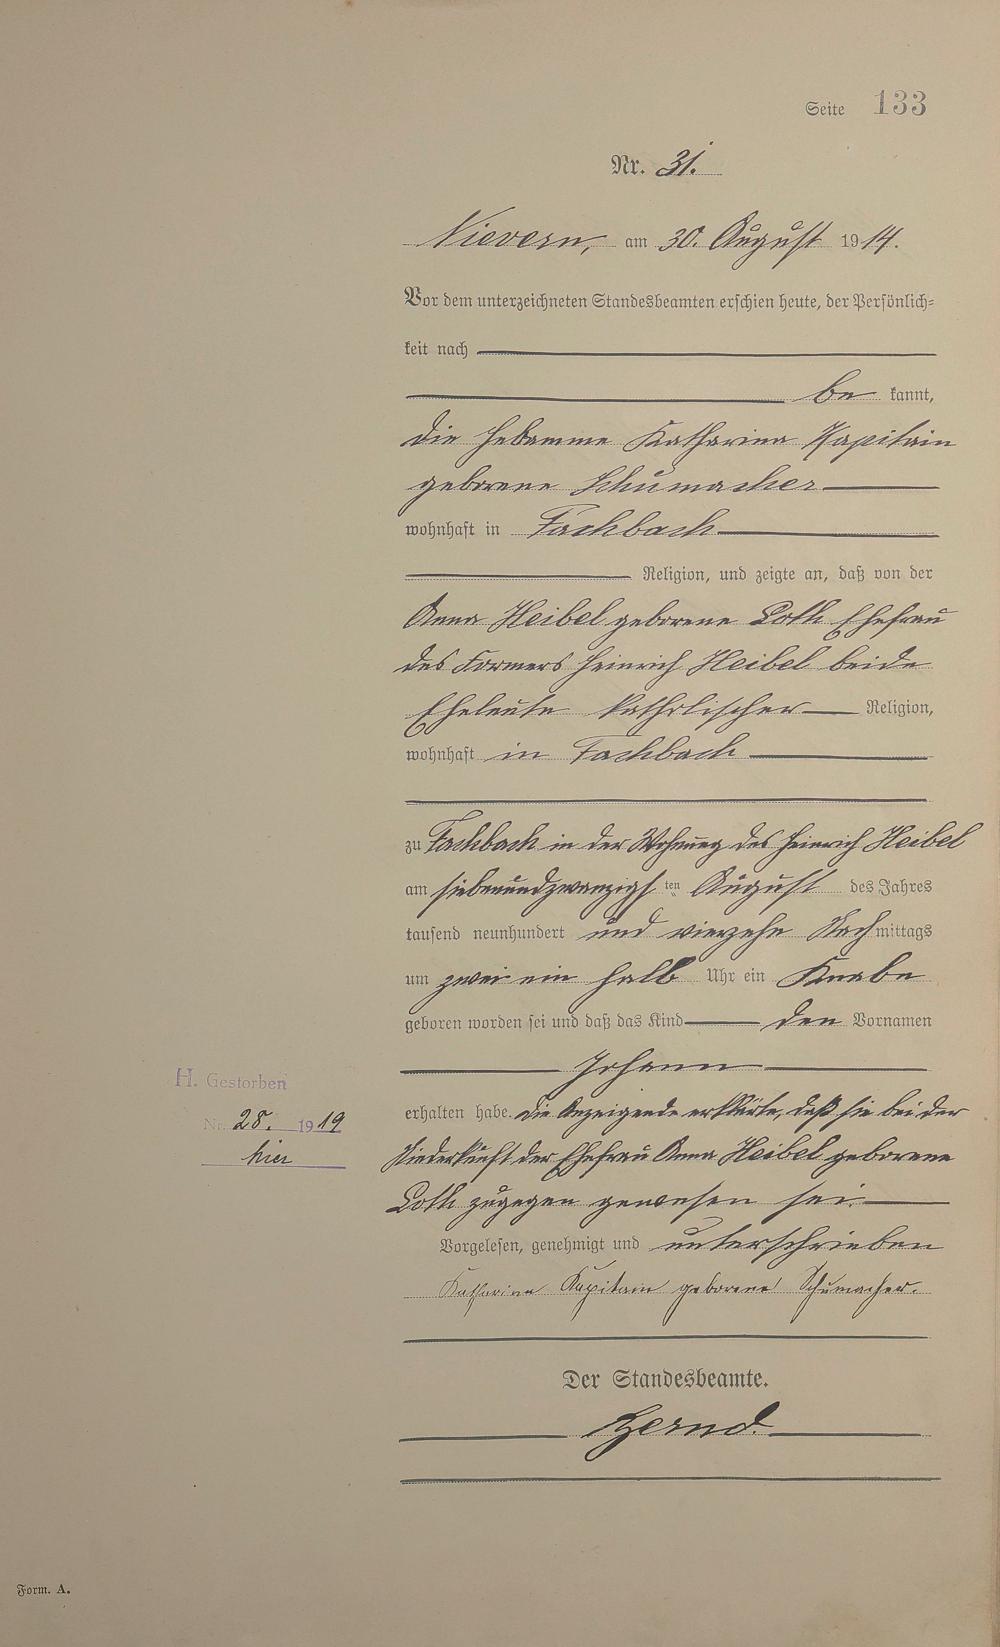 Seite 133
Nr. 31.
Nievern, am 30. August 1914.
Vor dem unterzeichneten Standesbeamten erschien heute, der Persönlich-
keit nach
be kannt,
die Hebamme Katharina Kapitain
geborene Schumacher
wohnhaft in Fachbach
Religion, und zeigte an, daß von der
Anna Heibel geborene Loth Ehefrau
des Formers Heinrich Heibel beide
Eheleute katholischer Religion,
wohnhaft in Fachbach
zu Fachbach in der Wohnung des Heinrich Heibel
am siebenundzwanzigsten August des Jahres
tausend neunhundert und vierzehn Nachmittags
um zwei ein halb Uhr ein Knabe
geboren worden sei und daß das Kind den Vornamen
Johann
H. Gestorben
erhalten habe. Die Anzeigende erklärte, daß sie bei der
Nr. 28. 1919
Niederkunft der Ehefrau Anna Heibel geborene
hier
Loth zugegen gewesen sei.
Vorgelesen, genehmigt und unterschrieben
Katharina Kapitain geborene Schumacher.
Der Standesbeamte.
Form. A.